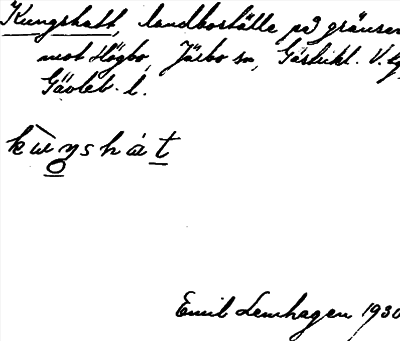 Kungshatt, landboställe på gränsen
mot Högbo, Järbo sn, Gästrikl. V. tg,
Gävleb. l.
kùŋshát
Emil Lemhagen 1930